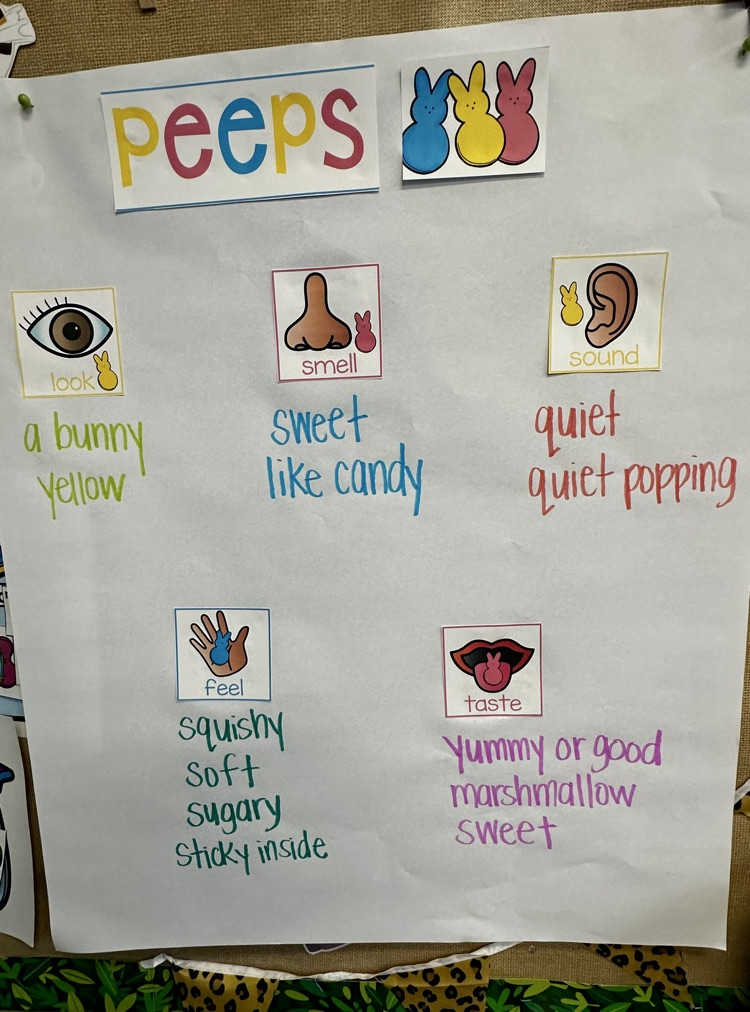 peeps
look
a bunny
yellow
smell
sweet
like candy
sound
quiet
quiet popping
feel
squishy
soft
sugary
sticky inside
taste
yummy or good
marshmallow
sweet